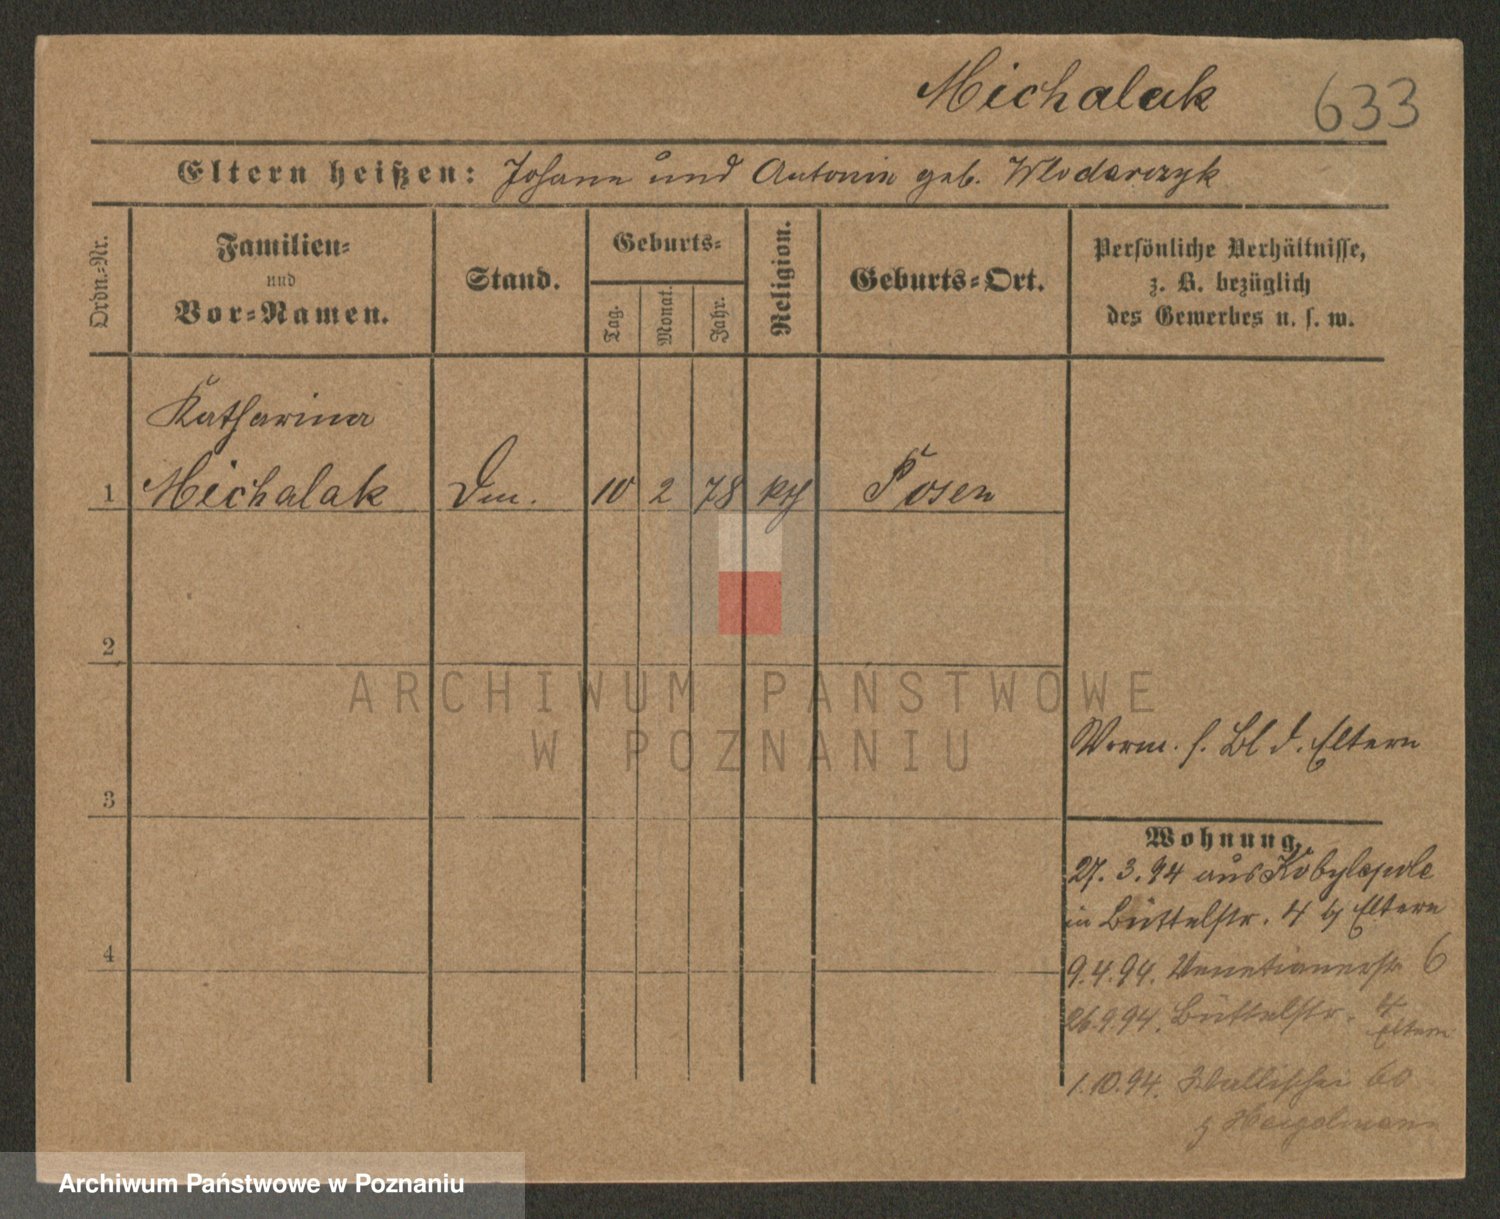 Michalak 633
Eltern heißen: Johann und Antonie geb. Wlodarczyk
Ordn.-Nr.
Familien-
und
Vor-Namen.
Stand.
Geburts-
Tag.
Monat.
Jahr.
Religion.
Geburts-Ort.
Persönliche Verhältnisse,
z. B. bezüglich
des Gewerbes u. s. w.
Katharina
1 Michalak 10 2 78 kth Posen
2
3
4
Vorm. s. Bl d. Eltern
Wohnung.
27. 3. 94 aus Kobylepole
in Büttelstr. 4 b/ Eltern
9.4.94. Venetianerstr 6
26.9.94. Büttelstr. 4
Eltern
1.10.94. Wallischei 60
ARCHIWUM PAŃSTWOWE
W POZNANIU
Archiwum Państwowe w Poznaniu